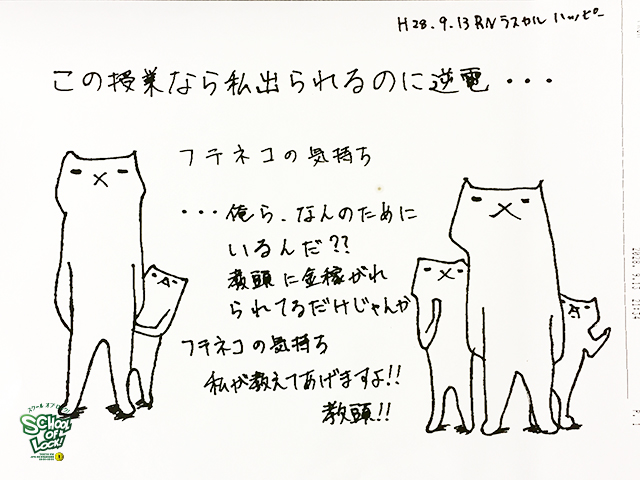 H28.9.13 RN ラスカルハッピー
この授業なら私出られるのに逆電・・・
フテネコの気持ち
・・・俺ら、なんのために
いるんだ??
教頭に金稼がれ
られてるだけじゃんか
フテネコの気持ち
私が教えてあげますよ!!
教頭!!
スクール オブ ロック!
SCHOOL
OF
LOCK!